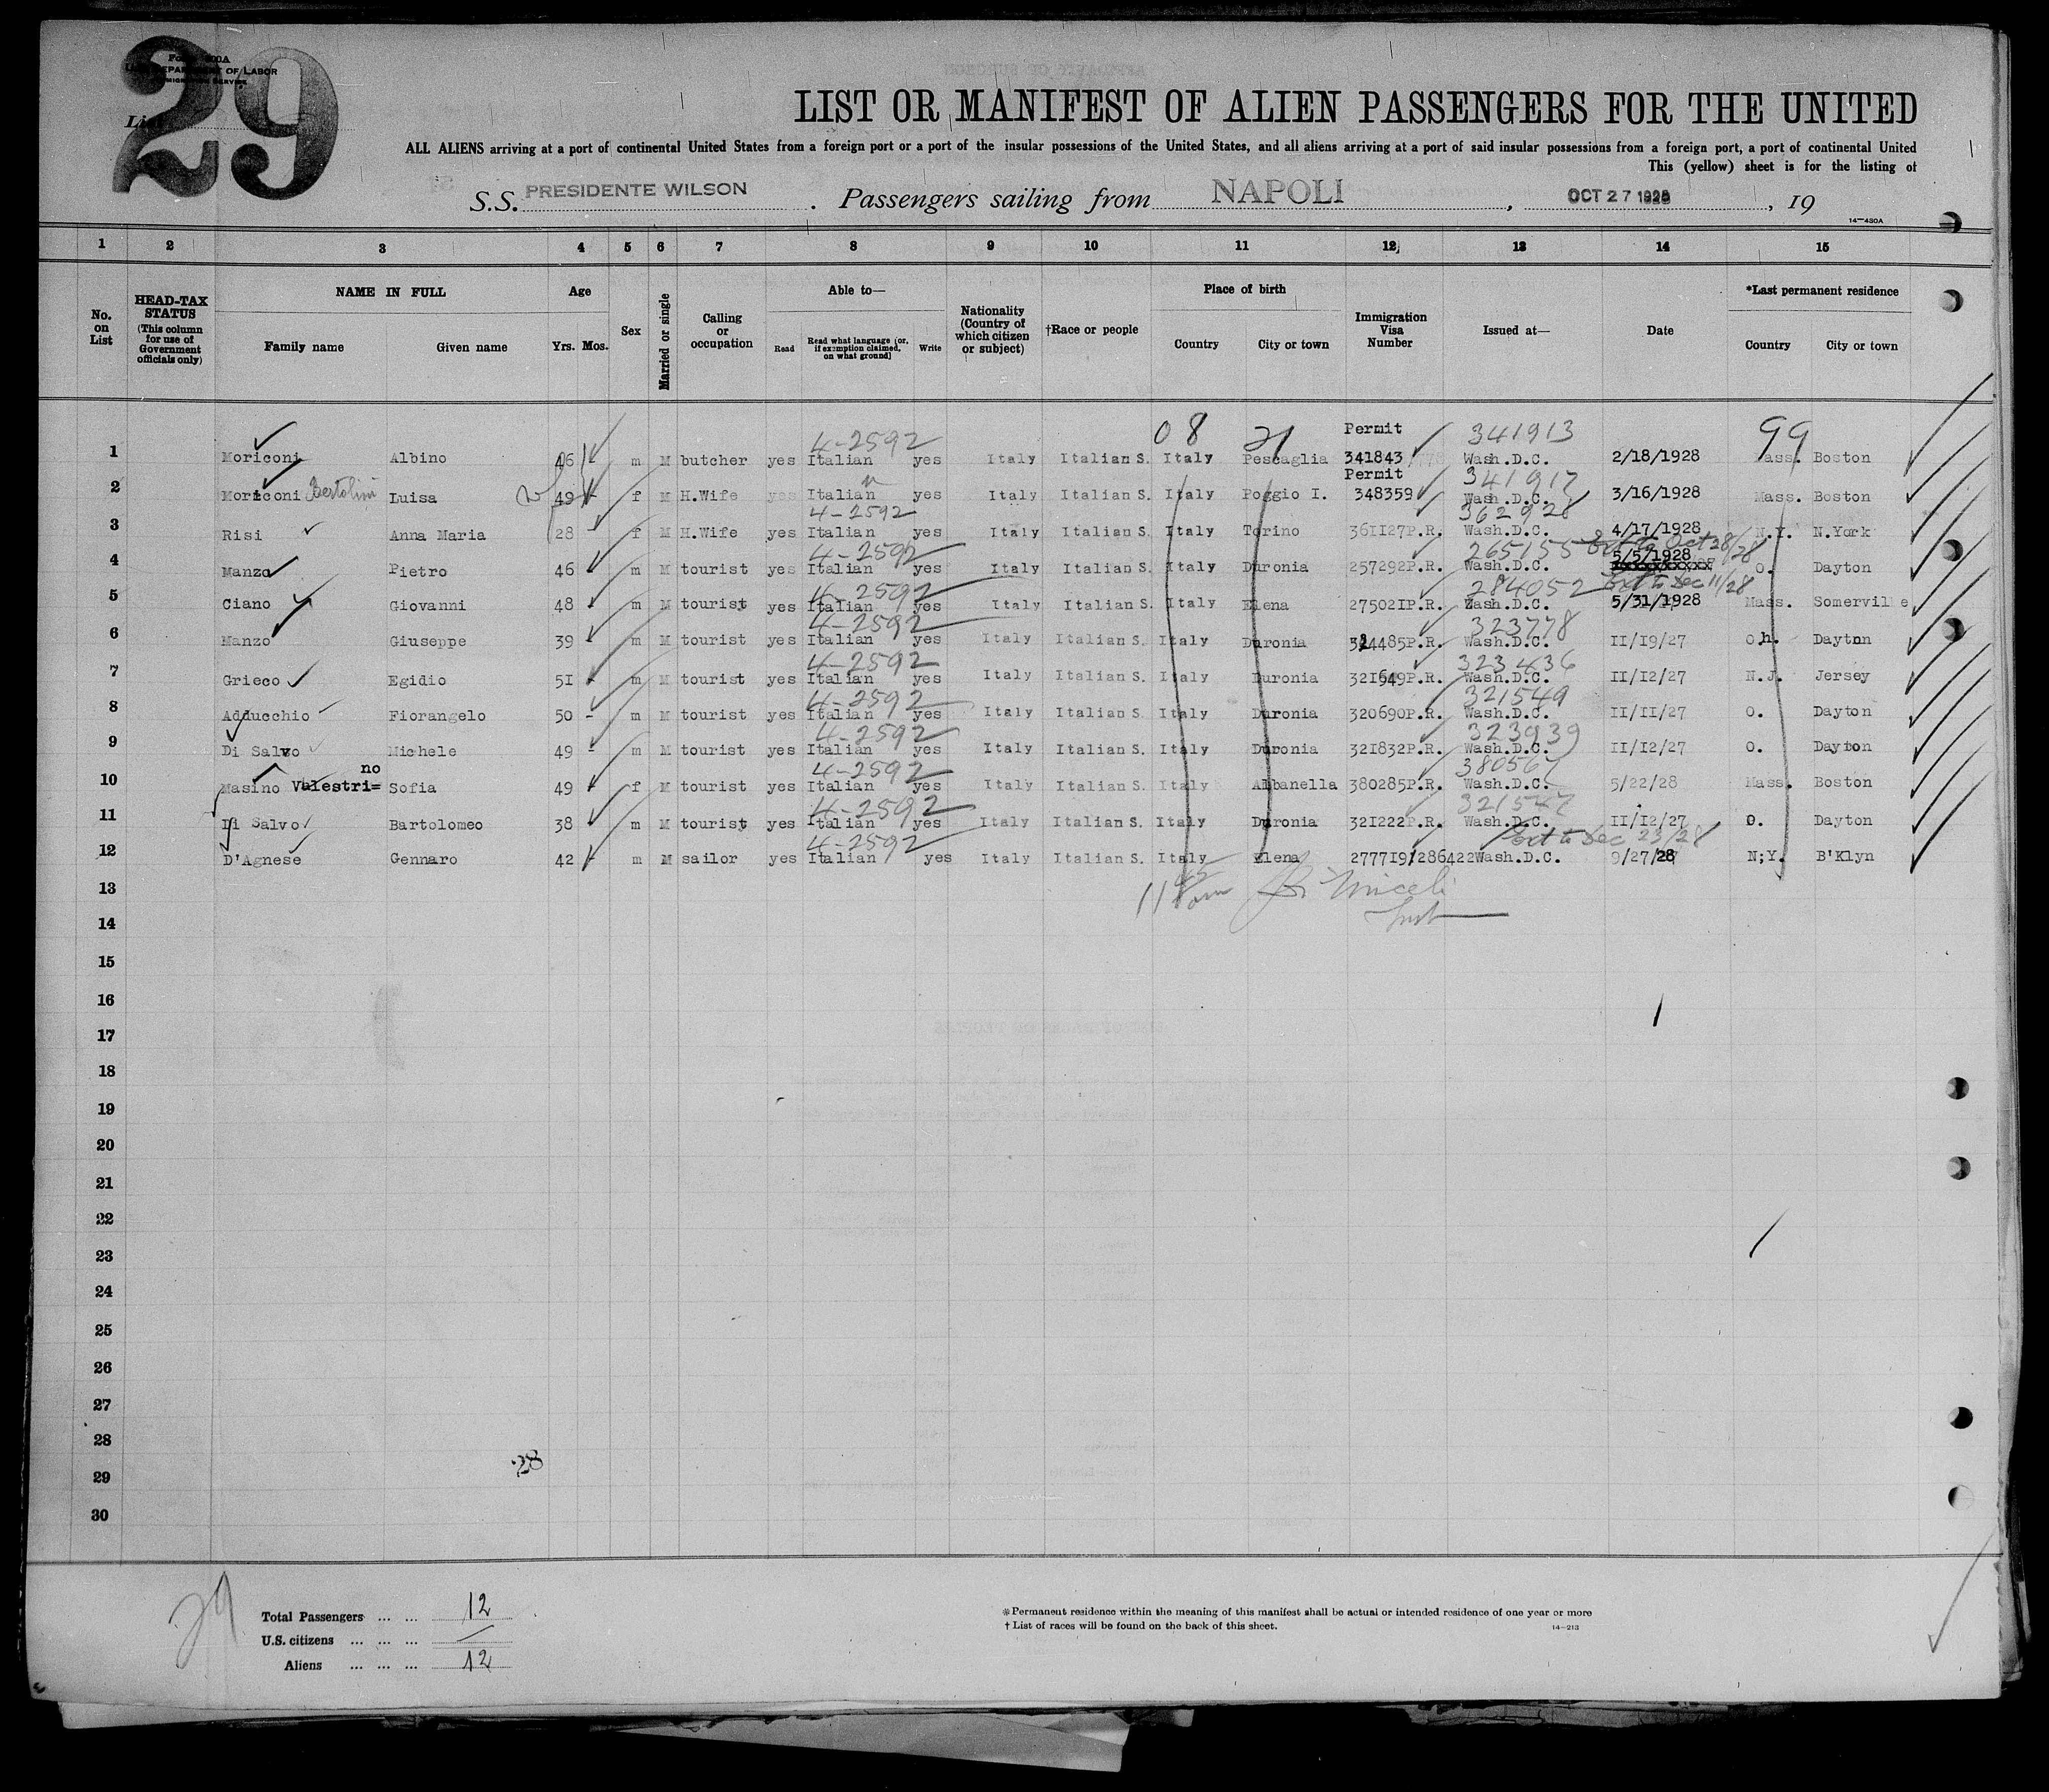 29
U.S. DEPARTMENT OF LABOR
IMMIGRATION SERVICE
LIST OR MANIFEST OF ALIEN PASSENGERS FOR THE UNITED
ALL ALIENS arriving at a port of continental United States from a foreign port or a port of the insular possessions of the United States, and all aliens arriving at a port of said insular possessions from a foreign port, a port of continental United
This (yellow) sheet is for the listing of
S.S. PRESIDENTE WILSON . Passengers sailing from NAPOLI , OCT 27 1928 , 19
14—430A
1 2 3 4 5 6 7 8 9 10 11 12 13 14 15
No. on List
HEAD-TAX STATUS (This column for use of Government officials only)
NAME IN FULL
Family name Given name
Age
Yrs. Mos.
Sex
Married or single
Calling or occupation
Able to—
Read Read what language (or, if exemption claimed, on what ground) Write
Nationality (Country of which citizen or subject)
†Race or people
Place of birth
Country City or town
Immigration Visa Number
Issued at—
Date
*Last permanent residence
Country City or town
4-2592 08 21 Permit 341913 99
1 Moriconi Albino 46 m M butcher yes Italian yes Italy Italian S. Italy Pescaglia 341843 Wash.D.C. 2/18/1928 Mass. Boston
Permit 341917
2 Moriconi Bertolini Luisa 49 f M H.Wife yes Italian yes Italy Italian S. Italy Poggio I. 348359 Wash.D.C. 3/16/1928 Mass. Boston
4-2592 362928
3 Risi Anna Maria 28 f M H.Wife yes Italian yes Italy Italian S. Italy Torino 361127P.R. Wash.D.C. 4/17/1928 N.Y. N.York
4-2592 265155 Ext to Oct 28/28
5/5/1928
4 Manzo Pietro 46 m M tourist yes Italian yes Italy Italian S. Italy Duronia 257292P.R. Wash.D.C. O. Dayton
4-2592 284052 Ext to Dec 11/28
5 Ciano Giovanni 48 m M tourist yes Italian yes Italy Italian S. Italy Elena 275021P.R. Wash.D.C. 5/31/1928 Mass. Somerville
4-2592 323778
6 Manzo Giuseppe 39 m M tourist yes Italian yes Italy Italian S. Italy Duronia 324485P.R. Wash.D.C. 11/19/27 Oh. Dayton
4-2592 323436
7 Grieco Egidio 51 m M tourist yes Italian yes Italy Italian S. Italy Duronia 321649P.R. Wash.D.C. 11/12/27 N.J. Jersey
4-2592 321549
8 Adducchio Fiorangelo 50 m M tourist yes Italian yes Italy Italian S. Italy Duronia 320690P.R. Wash.D.C. 11/11/27 O. Dayton
4-2592 323939
9 Di Salvo Michele 49 m M tourist yes Italian yes Italy Italian S. Italy Duronia 321832P.R. Wash.D.C. 11/12/27 O. Dayton
no 4-2592 380567
10 Masino Valestri= Sofia 49 f M tourist yes Italian yes Italy Italian S. Italy Albanella 380285P.R. Wash.D.C. 5/22/28 Mass. Boston
4-2592 321547
11 Di Salvo Bartolomeo 38 m M tourist yes Italian yes Italy Italian S. Italy Duronia 321222P.R. Wash.D.C. 11/12/27 O. Dayton
4-2592 Ext to Dec 23/28
12 D'Agnese Gennaro 42 m M sailor yes Italian yes Italy Italian S. Italy Elena 277719/286422Wash.D.C. 9/27/28 N;Y. B'Klyn
13
14
15
16
17
18
19
20
21
22
23
24
25
26
27
28
29
30
28
29
Total Passengers ... ... 12
U.S. citizens ... ... ...
Aliens ... ... ... 12
* Permanent residence within the meaning of this manifest shall be actual or intended residence of one year or more
† List of races will be found on the back of this sheet.
14—213